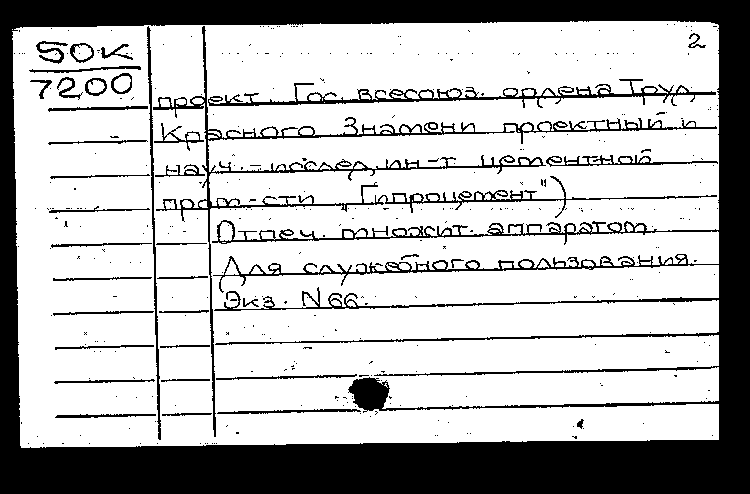 2
50К
7200
проект. Гос. всесоюз. ордена Труд.
Красного Знамени проектный и
науч.-исслед. ин-т цементной
пром-сти „Гипроцемент")
Отпеч. множит. аппаратом.
Для служебного пользования.
Экз. N66.